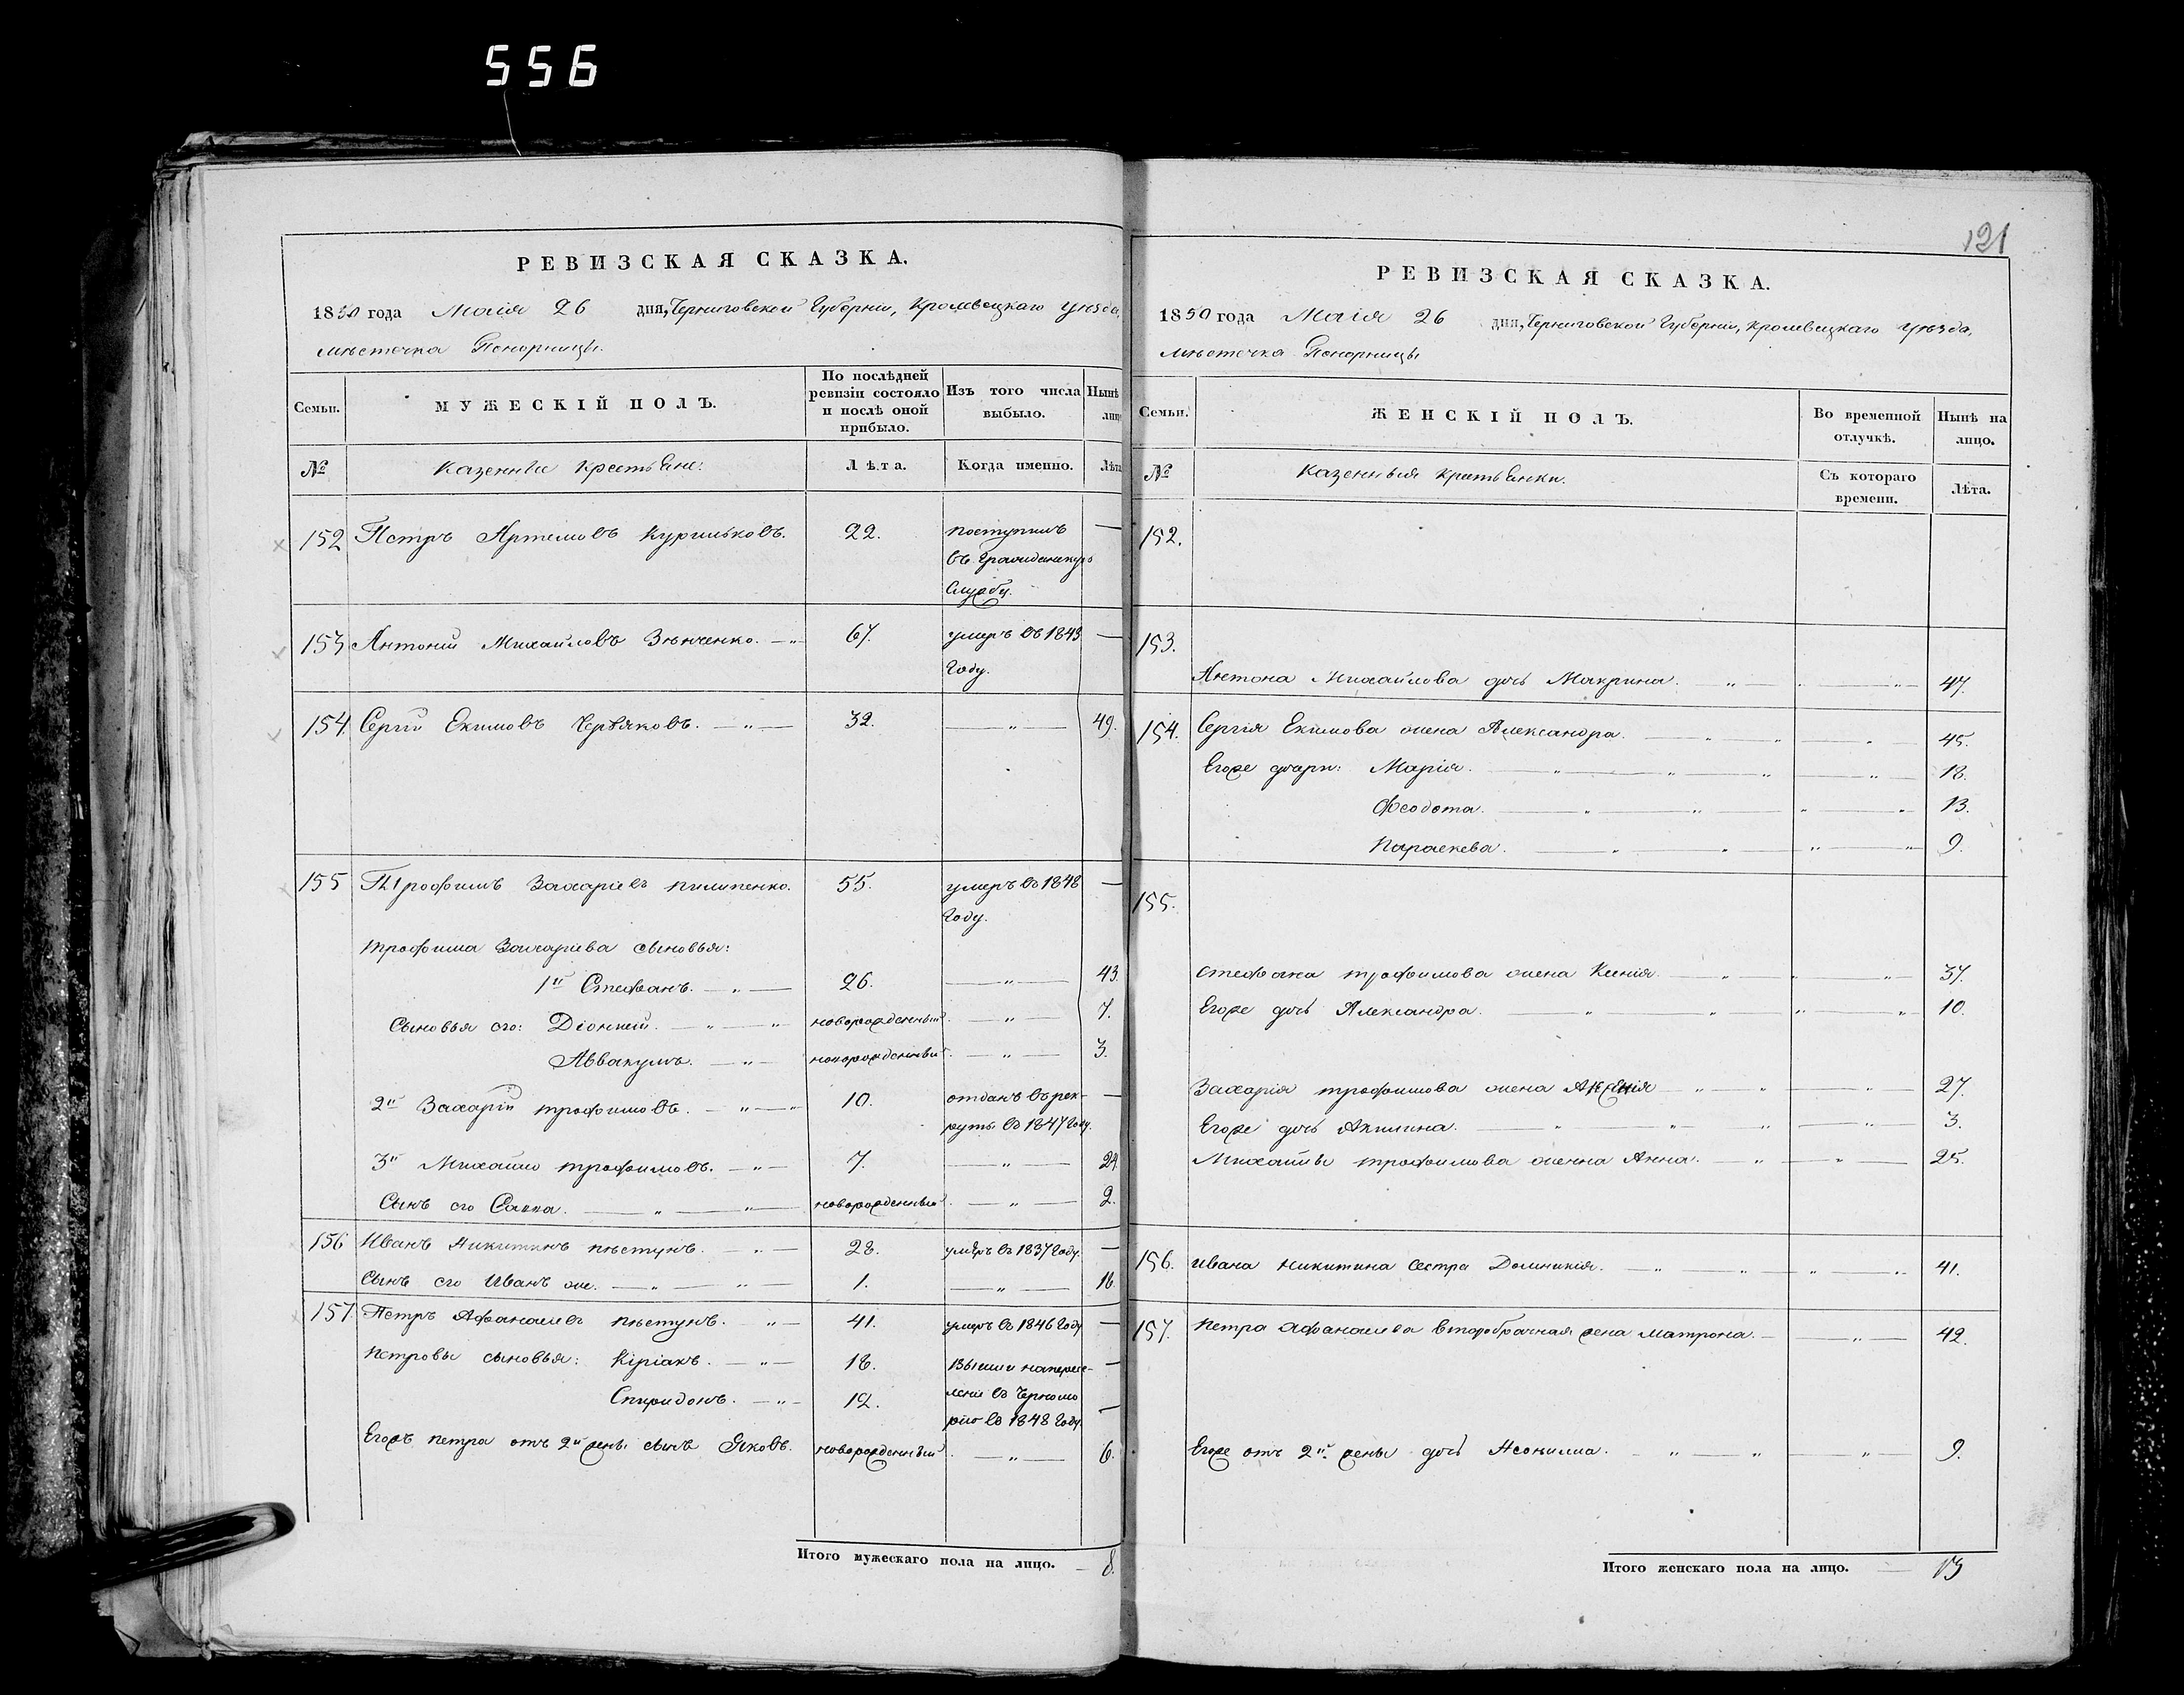 556
РЕВИЗСКАЯ СКАЗКА.
1850 года Маія 26 дня, Черниговской Губерніи, Кролевецкаго уѣзда,
мѣстечка Понорницы.
Семьи.
МУЖЕСКІЙ ПОЛЪ.
По послѣдней ревизіи состояло и послѣ оной прибыло.
Изъ того числа выбыло.
Нынѣ лиц
№
Казенніе крестьяне:
Лѣта.
Когда именно.
Лѣта
152 Петръ Артемовъ Курильковъ. 22. поступилъ —
въ Гражданскую
Службу.
153 Антоній Михайловъ Зѣнченко. — „ — 67. умеръ въ 1843 —
Году.
154. Сергій Екимовъ Червяковъ. — „ — 32. — „ — 49.
155 Трофимъ Захаріевъ пилипенко. 55. умеръ въ 1848 —
Году.
трофима Захаріева сыновья:
1й Стефанъ. — „ — 26. — „ — 43.
Сыновья его: Діонисій. — „ — „ новорожденный. — „ — 7.
Аввакумъ. — „ — новорожденный. — „ — 3.
2й Захарій трофимовъ. — „ — „ 10. отданъ въ рек- —
руты въ 1847 Году.
3й Михайло трофимовъ. — „ — 7. — „ — 24.
Сынъ его Савва. — „ — „ — новорожденный. — „ — 2.
156 Иванъ Никитинъ пѣстунъ. — „ — 28. умеръ въ 1837 Году. —
Сынъ его Иванъ же. — „ — „ — 1. — „ — 16.
157. Петръ Афанасіевъ пѣстунъ. — „ — 41. умеръ въ 1846 Году —
Петровы сыновья: Киріакъ. — „ — 18. Вышли на пересе- —
Спиридонъ. — „ — 12. леніе въ Черномо
рію въ 1848 Году. —
Егожъ петра отъ 2й жены сынъ Яковъ. новорожденный. — „ — 6.
Итого мужескаго пола на лицо. — 8.
121
РЕВИЗСКАЯ СКАЗКА.
1850 года Маія 26 дня, Черниговской Губерніи, Кролевецкаго уѣзда,
мѣстечка Понорницы
Семьи.
ЖЕНСКІЙ ПОЛЪ.
Во временной отлучкѣ.
Нынѣ на лицо.
№
Казенныя крестьянки.
Съ котораго времени.
Лѣта.
152.
153.
Антона Михайлова дочь Макрина. „ — „ — 47.
154. Сергія Екимова жена Александра. — „ — „ — „ — 45.
Егоже дочери: Марія. — „ — „ — „ — „ — 18.
Феодота. — „ — „ — „ — „ 13.
Параскева. — „ — „ — „ — „ 9.
155.
Стефана трофимова жена Ксенія. — „ — „ — 37.
Егоже дочь Александра. — „ — „ — „ — „ 10.
Захарія трофимова жена Аксенія „ — „ — „ — 27.
Егоже дочь Акилина. — „ — „ — „ — „ — 3.
Михайлы трофимова жена Анна. — „ — „ — 25.
156. Ивана Никитина сестра Домникія. — „ — „ — „ — „ 41.
157. Петра Афанасіева второбрачная жена Матрона. — „ — 42.
Егоже отъ 2й жены дочь „ — „ — „ 9.
Итого женскаго пола на лицо. — 13